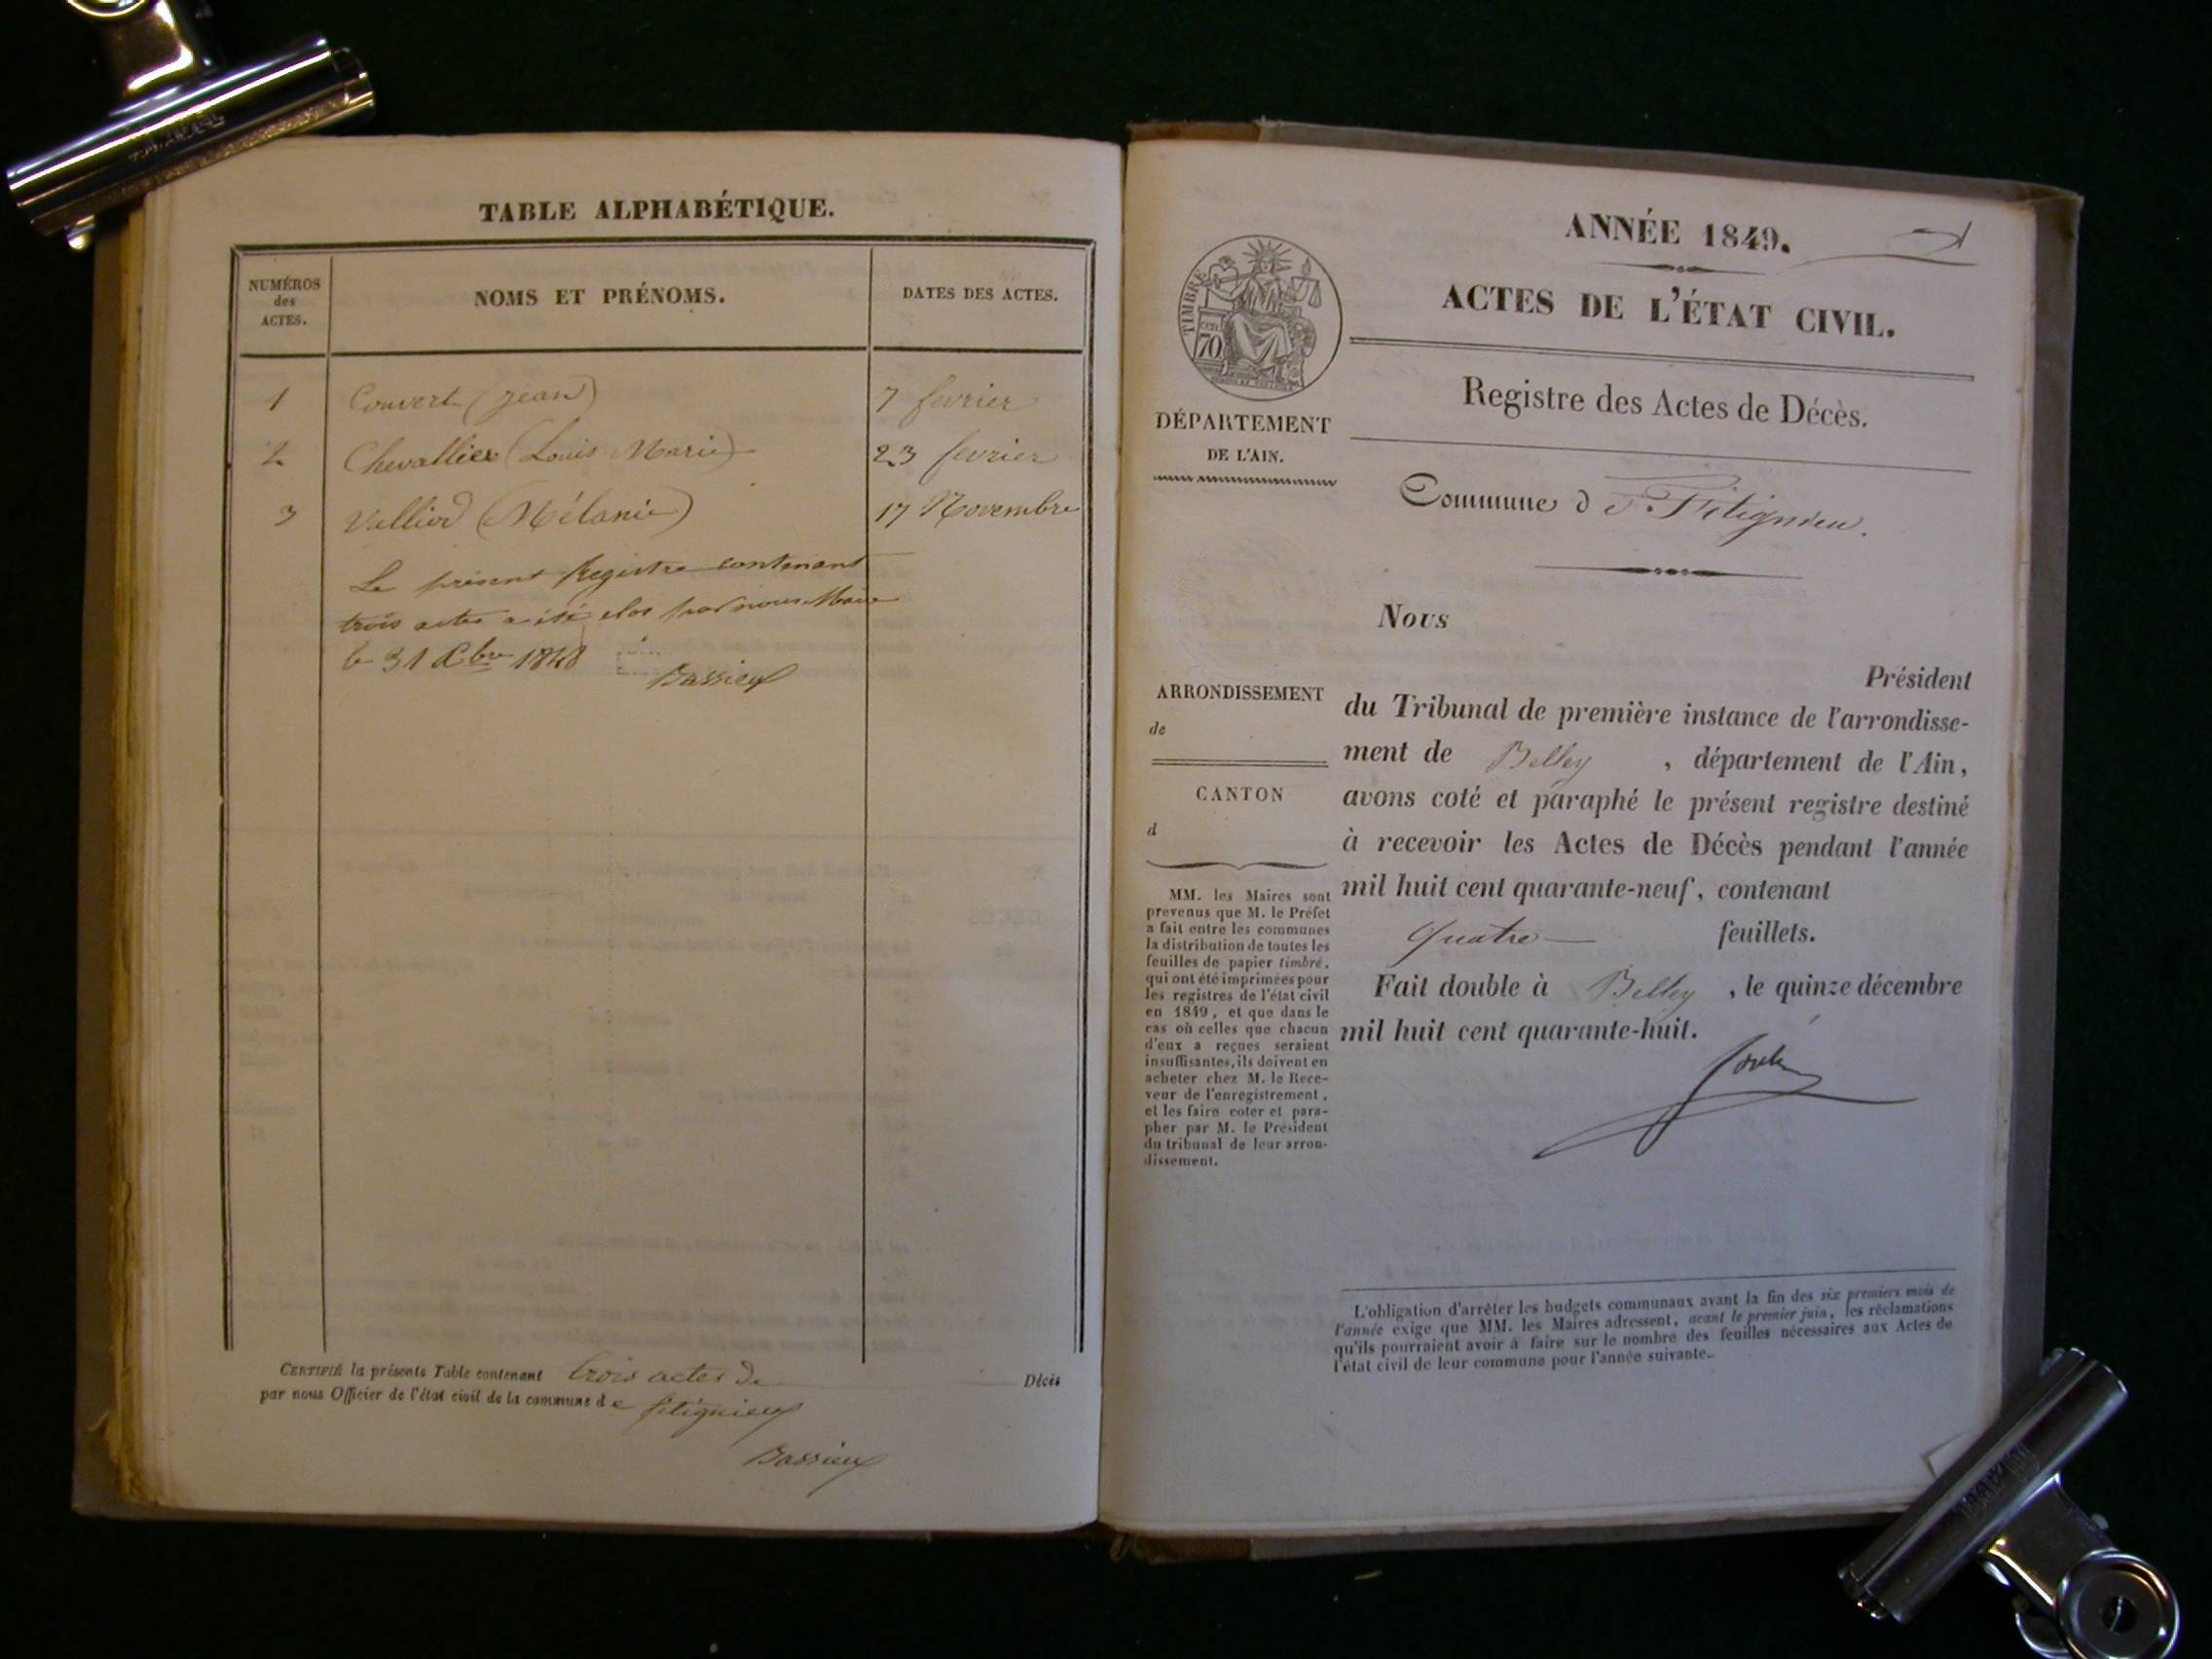 TABLE ALPHABÉTIQUE.
NUMÉROS
des
ACTES.
NOMS ET PRÉNOMS.
DATES DES ACTES.
1 Convert (jean) 7 fevrier
2 Chevallier (Louis Marie) 23 fevrier
3 Valliod (Mélanie) 17 Novembre
Le présent Registre contenant
trois actes a été clos par nous Maire
le 31 Xbre 1848
Bassieux
CERTIFIÉ la présente Table contenant trois actes de Décès
par nous Officier de l'état civil de la commune de fitignieux
Bassieux
ANNÉE 1849.
ACTES DE L'ÉTAT CIVIL.
TIMBRE
cen
70
Registre des Actes de Décès.
DÉPARTEMENT
DE L'AIN.
Commune de Fitignieu.
Nous
Président
du Tribunal de première instance de l'arrondisse-
ment de Belley , département de l'Ain,
avons coté et paraphé le présent registre destiné
à recevoir les Actes de Décès pendant l'année
mil huit cent quarante-neuf, contenant
quatre feuillets.
Fait double à Belley , le quinze décembre
mil huit cent quarante-huit.
ARRONDISSEMENT
de
CANTON
d
MM. les Maires sont
prévenus que M. le Préfet
a fait entre les communes
la distribution de toutes les
feuilles de papier timbré,
qui ont été imprimées pour
les registres de l'état civil
en 1849, et que dans le
cas où celles que chacun
d'eux a reçues seraient
insuffisantes, ils doivent en
acheter chez M. le Rece-
veur de l'enregistrement,
et les faire coter et para-
pher par M. le Président
du tribunal de leur arron-
dissement.
L'obligation d'arrêter les budgets communaux avant la fin des six premiers mois de
l'année exige que MM. les Maires adressent, avant le premier juin, les réclamations
qu'ils pourraient avoir à faire sur le nombre des feuilles nécessaires aux Actes de
l'état civil de leur commune pour l'année suivante.